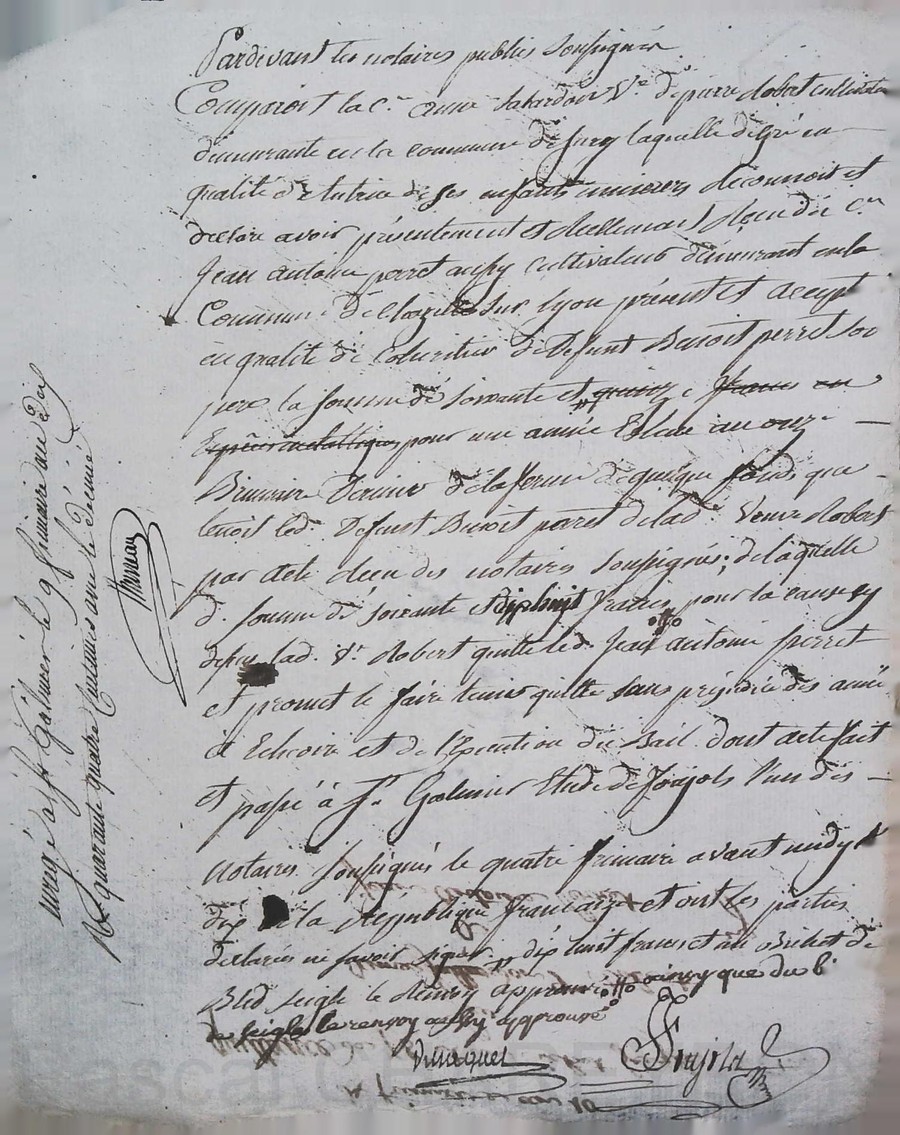 Pardevant les notaires publics soussignés
Comparoit la C.ne anne V.e de pierre Robert cultivateur
demeurante en la commune de laquelle de gré en
qualité de tutrice de ses enfants mineurs reconnoit et
declare avoir présentement et réellement reçu du C.en
Jean antoine perret aussy cultivateur demeurant en la
Commune de sur lyon présent et accept.
en qualité de Curateur de Defunt Benoit perret son
pere la somme de soixante et quinze francs en
Espèces métalliques pour une année Echue au onze
Brumaire Dernier de la ferme de quelque fonds que
tenoit led. Defunt Benoit perret de lad. Veuve Robert
par acte reçu des notaires soussignés; de laquelle
d. somme de soixante et dix huit francs pour la cause sy
dessus lad. V.e Robert quitte led. Jean antoine perret
et promet le faire tenir quitte sans préjudice des année
à Echeoire et de l'Execution du Bail dont acte fait
et passé à S.t Galmier Etude de Foujols l'un des
notaires soussignés le quatre frimaire avant midy
dix de la République francaise et ont les parties
declarés ne savoir signer. dix huit francs et un Bichet de
Bled seigle le renvoy approuvé ainsy que du b.
de seigle le renvoy aussy approuvé
Foujols
enreg.é à S.t Galmier le 9 frimaire an dix
R. quarante quatre Centimes avec le décime